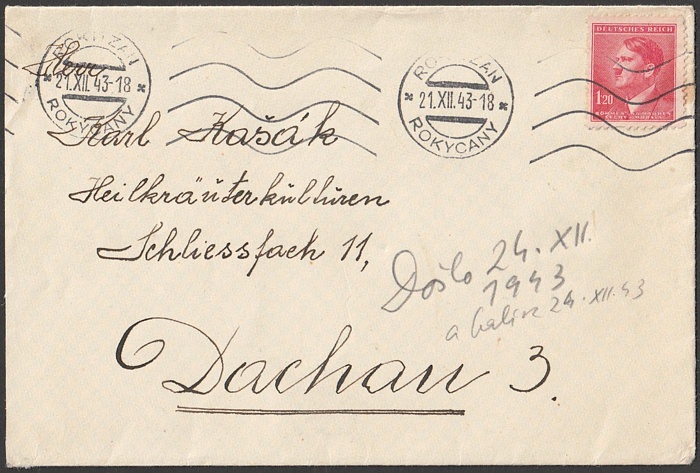 ROKITZAN
* 21.XII.43-18 *
ROKYCANY
ROKITZAN
* 21.XII.43-18 *
ROKYCANY
DEUTSCHES REICH
1.20
BÖHMEN UND MÄHREN
Herr
Karl Kašák
Heilkräuterkulturen
Schliessfach 11,
Dachau 3.
Došlo 24. XII.
1943
a balík 24. XII. 43